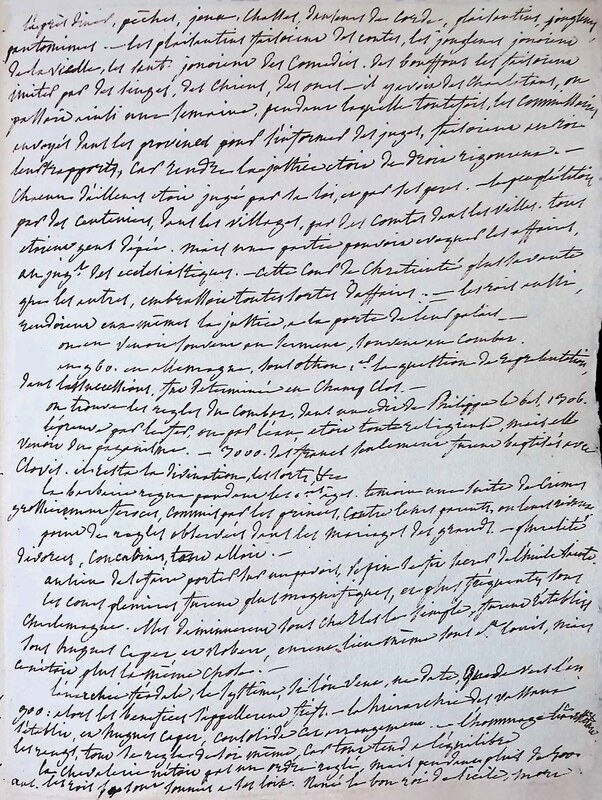 l'après diner, pêches, jeux, chasses, danseurs de corde, plaisantins, jongleurs
pantomimes. — les plaisantins faisoient des contes, les jongleurs jouoient
de la vielle, les jouoient des comedies. des bouffons les faisoient
imiter par des singes, des chiens, des ours — il y avoit des charlatans, on
passoit ainsi une semaine, pendant laquelle toutefois, les commissaires
envoyés dans les provinces pour s'informer des juges, faisoient au roi
leurs rapports, car rendre la justice etoit de droit rigoureux. —
chacun d'ailleurs etoit jugé par sa loi, et par ses pairs. — le peuple l'etoit
par des centeniers, dans les villages, par des comtes dans les villes. tous
etoient gens d'épée. mais une partie pouvoit evoquer les affaires,
au jugt. des ecclesiastiques. — cette cour de chretienté plus savante
que les autres, embrassoit toutes sortes d'affaires. — les rois aussi,
rendoient eux mêmes la justice, a la porte de leur palais. —
on en venoit souvent au serment, souvent au combat.
en 960. en allemagne, sous othon, la question de representation
dans les successions, fut determinée en champ clos. —
on trouve les regles du combat, dans un edit de Philippe le bel, 1306.
l'epreuve par le fer, ou par l'eau etoit toute religieuse, mais elle
venoit du paganisme. — 3000. des francs seulement furent baptisés avec
Clovis. et resta la divination, les sorts, &c
la barbarie regna pendant les siecles. temoin une suite de crimes
grossierement feroces, commis par les princes, contre leurs parents, ou leurs
point de regles observées dans les mariages des grands. — pluralité
divorces, concubines, tout alloit. —
au lieu de
les cours plenieres furent plus magnifiques, et plus frequentes sous
Charlemagne. elles diminuerent sous charles le simple, furent retablies
sous hugues capet et robert, eurent lieu même sous st. louis, mais
c'etoit plus la même chose. —
l'anarchie feodale, le systême, si l'on veut, ne date, que de vers l'an
900: alors les benefices s'appellerent fiefs. — la hierarchie des vassaux
s'etablit, et hugues capet, consolide cet arrangement. — l'hommage
les rangs, tout se regla de soi même, car tout tend a l'equilibre
la chevalerie n'etoit pas un ordre reglé, mais pendant plus de 300
ans. les rois se sont soumis a ses loix. René le bon roi de sicile, mort